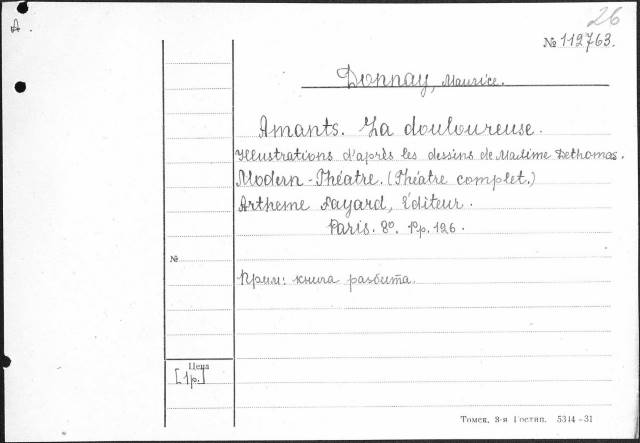 26
A.
№ 112763.
Donnay, Maurice.
Amants. La douloureuse.
Illustrations d'après les dessins de Maxime Dethomas.
Modern-Théatre. (Théatre complet.)
Artheme Fayard, Éditeur.
Paris. 8º. Pp. 126.
№
Прим: книга разбита.
Цена
[1р.]
Томск, 3-я Гостип. 5314-31